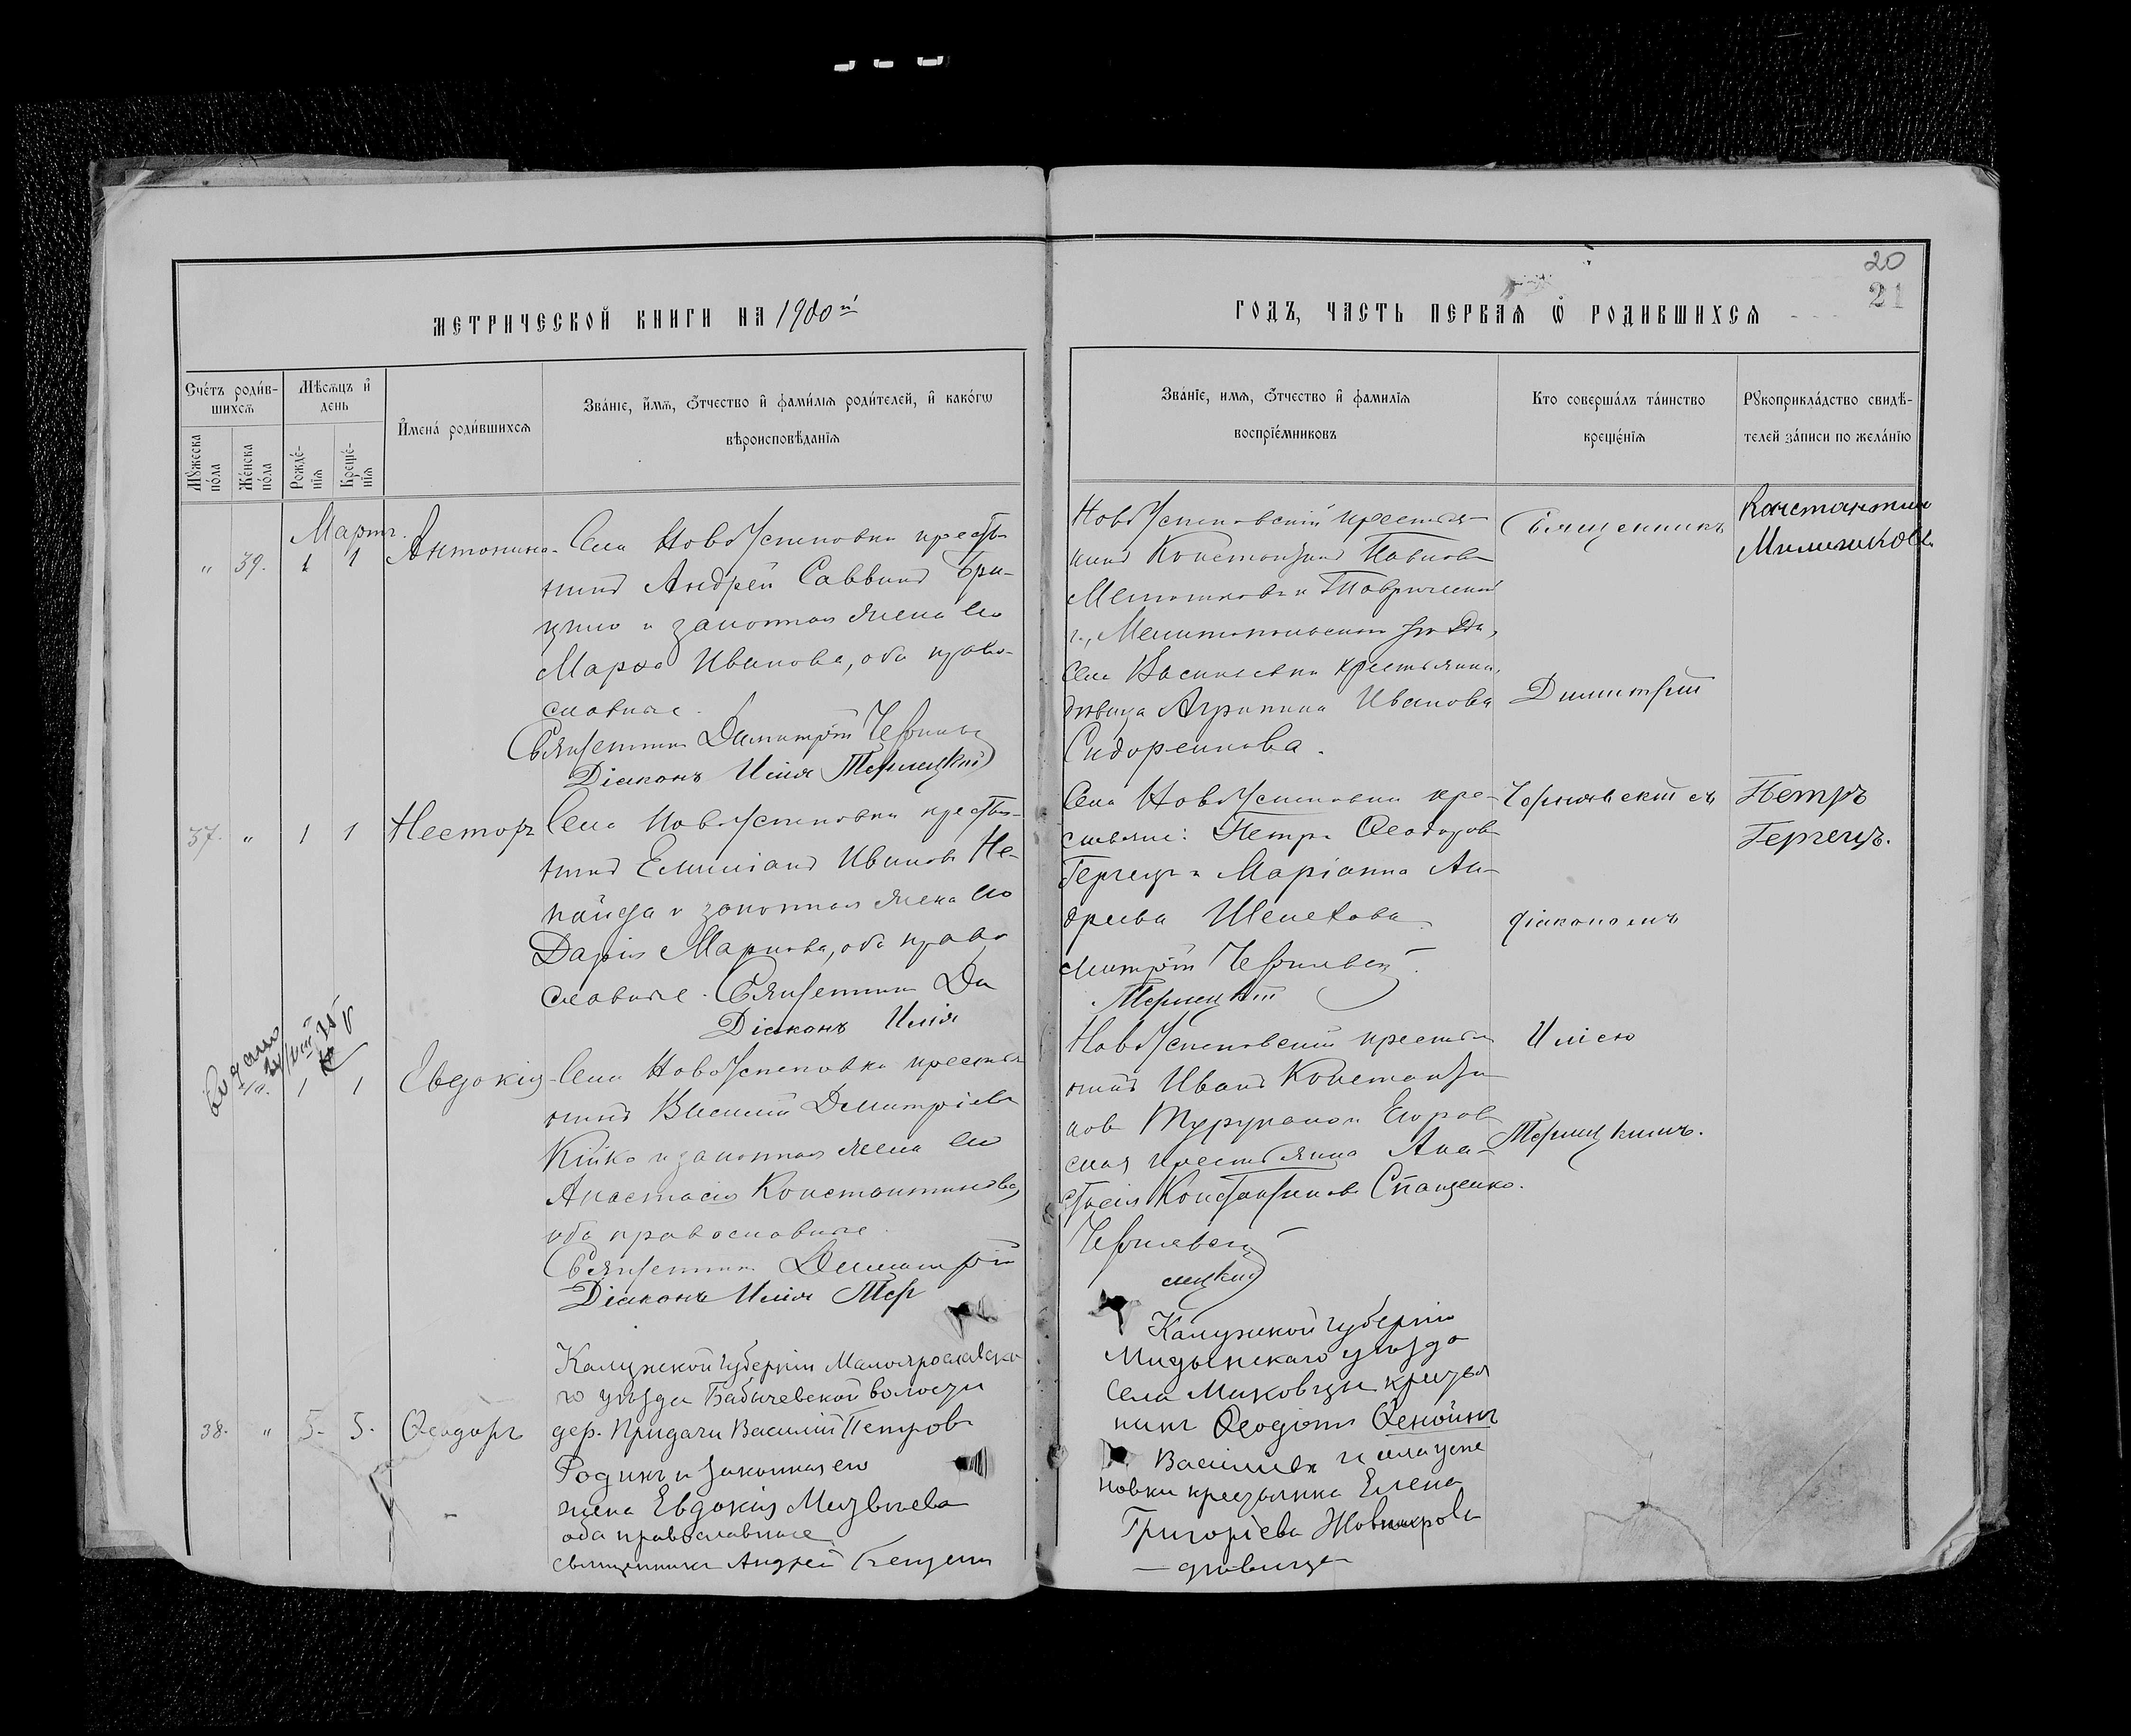 20
21
МЕТРИЧЕСКОЙ КНИГИ НА 1900й
ГОДЪ, ЧАСТЬ ПЕРВАЯ Ѡ РОДИВШИХСЯ
Сче́тъ роди́вшихсѧ
Мѣ́сѧцъ и҆ день
И҆мена́ роди́вшихсѧ
Зва́нїе, и҆́мѧ, ѻ҆́тчество и҆ фами́лїѧ роди́телей, и҆ како́гѡ
вѣроисповѣ́данїѧ
Мꙋ́жеска по́ла
Же́нска по́ла
Рожде́нїѧ
Креще́нїѧ
Зва́нїе, имѧ, ѻ҆́тчество и҆ фамилїѧ
воспрїе́мниковъ
Кто соверша́лъ та́инство
креще́нїѧ
Рꙋкоприкла́дство свидѣ́-
телей за́писи по жела́нїю
Мартъ.
" 39. 1 1 Антонина
Села НовоУспеновки крестья
нинъ Андрей Саввинъ Гри-
цько и законная жена его
Марѳа Иванова, оба право-
славные.
Священникъ Димитрій
Діаконъ Илія Терлецкій
НовоУспеновскій крестья-
нинъ Константинъ Павловъ
и Таврической
г., Мелитопольскаго уѣзда,
села Васильевки крестьянина
дѣвица Агрипина Иванова
Сидоренкова.
Священникъ
Димитрій
Константинъ
37. " 1 1 Несторъ
Села НовоУспеновки крестья-
нинъ Емиліанъ Ивановъ Не-
пайда и законная жена его
Дарія Маркова, оба право
славные. Священникъ Ди
Діаконъ Илія
Села НовоУспеновки кре-
стьяне: Петръ Ѳеодоровъ
Гергецъ и Маріанна Ан-
дреева Шелехова
митрій
Терлецкій
съ
діакономъ
Петръ
Гергецъ.
1 1 Евдокія
Села НовоУспеновки крестья
нинъ Василій Димитріевъ
Кійко и законная жена его
Анастасія Константинова,
оба православные.
Священникъ Димитрій
Діаконъ Илія Тер
НовоУспеновскій крестья
нинъ Иванъ Константи
новъ Турупанъ и Егоров
ская крестьянка Ана-
стасія Константинова Спащенко.
лецкій
Иліею
Терлецкимъ.
38. " 5. 5. Ѳеодоръ
Калужской губерніи Малоярославска
го уѣзда Бабичевской волости
дер. Придачи Василій Петровъ
Родинъ и законная его
жена Евдокія Матвѣева
оба православные
священникъ Андрей
Калужской губерніи
Мидынскаго уѣзда
села Маковцы крестья
нинъ
Васильевъ и села Успе
новки крестьянка Елена
Григоріева
дѣвица